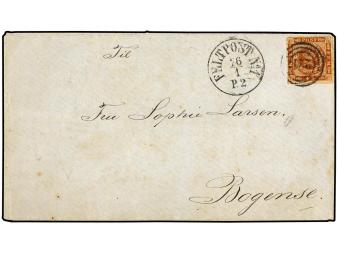 Til
FELTPOST No 1
26
1
P.2
Fru Sophie Larsen.
Bogense.